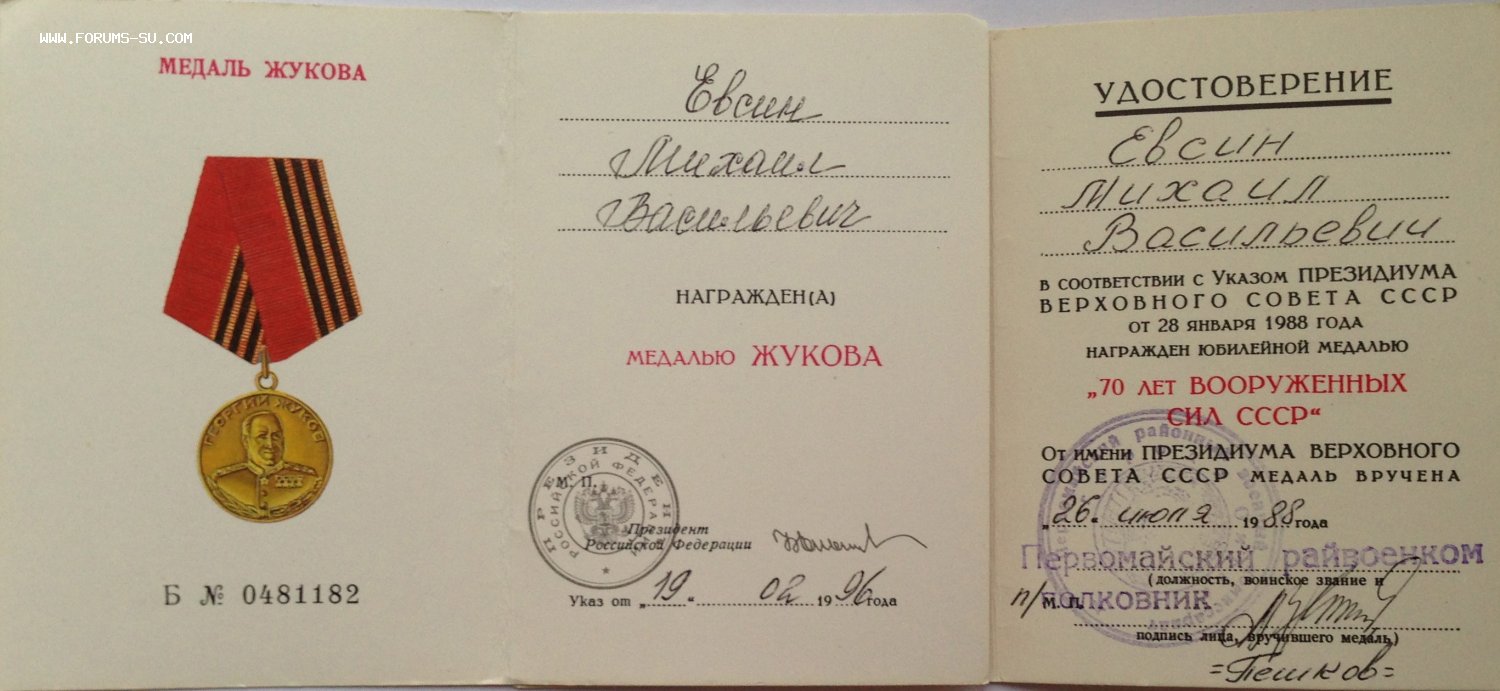 www.forums-su.com
МЕДАЛЬ ЖУКОВА
ГЕОРГИЙ ЖУКОВ
Б № 0481182
Евсин
Михаил
Васильевич
НАГРАЖДЕН(А)
МЕДАЛЬЮ ЖУКОВА
ПРЕЗИДЕНТ
РОССИЙСКОЙ ФЕДЕРАЦИИ
М. П.
Президент
Российской Федерации
Указ от „19“ 02 1996 года
УДОСТОВЕРЕНИЕ
Евсин
Михаил
Васильевич
В СООТВЕТСТВИИ С УКАЗОМ ПРЕЗИДИУМА
ВЕРХОВНОГО СОВЕТА СССР
ОТ 28 ЯНВАРЯ 1988 ГОДА
НАГРАЖДЕН ЮБИЛЕЙНОЙ МЕДАЛЬЮ
„70 ЛЕТ ВООРУЖЕННЫХ
СИЛ СССР“
ОТ ИМЕНИ ПРЕЗИДИУМА ВЕРХОВНОГО
СОВЕТА СССР МЕДАЛЬ ВРУЧЕНА
„26“ июля 1988 года
Первомайский райвоенком
(должность, воинское звание и
п/полковник
М. П.
подпись лица, вручившего медаль)
=Пешков=